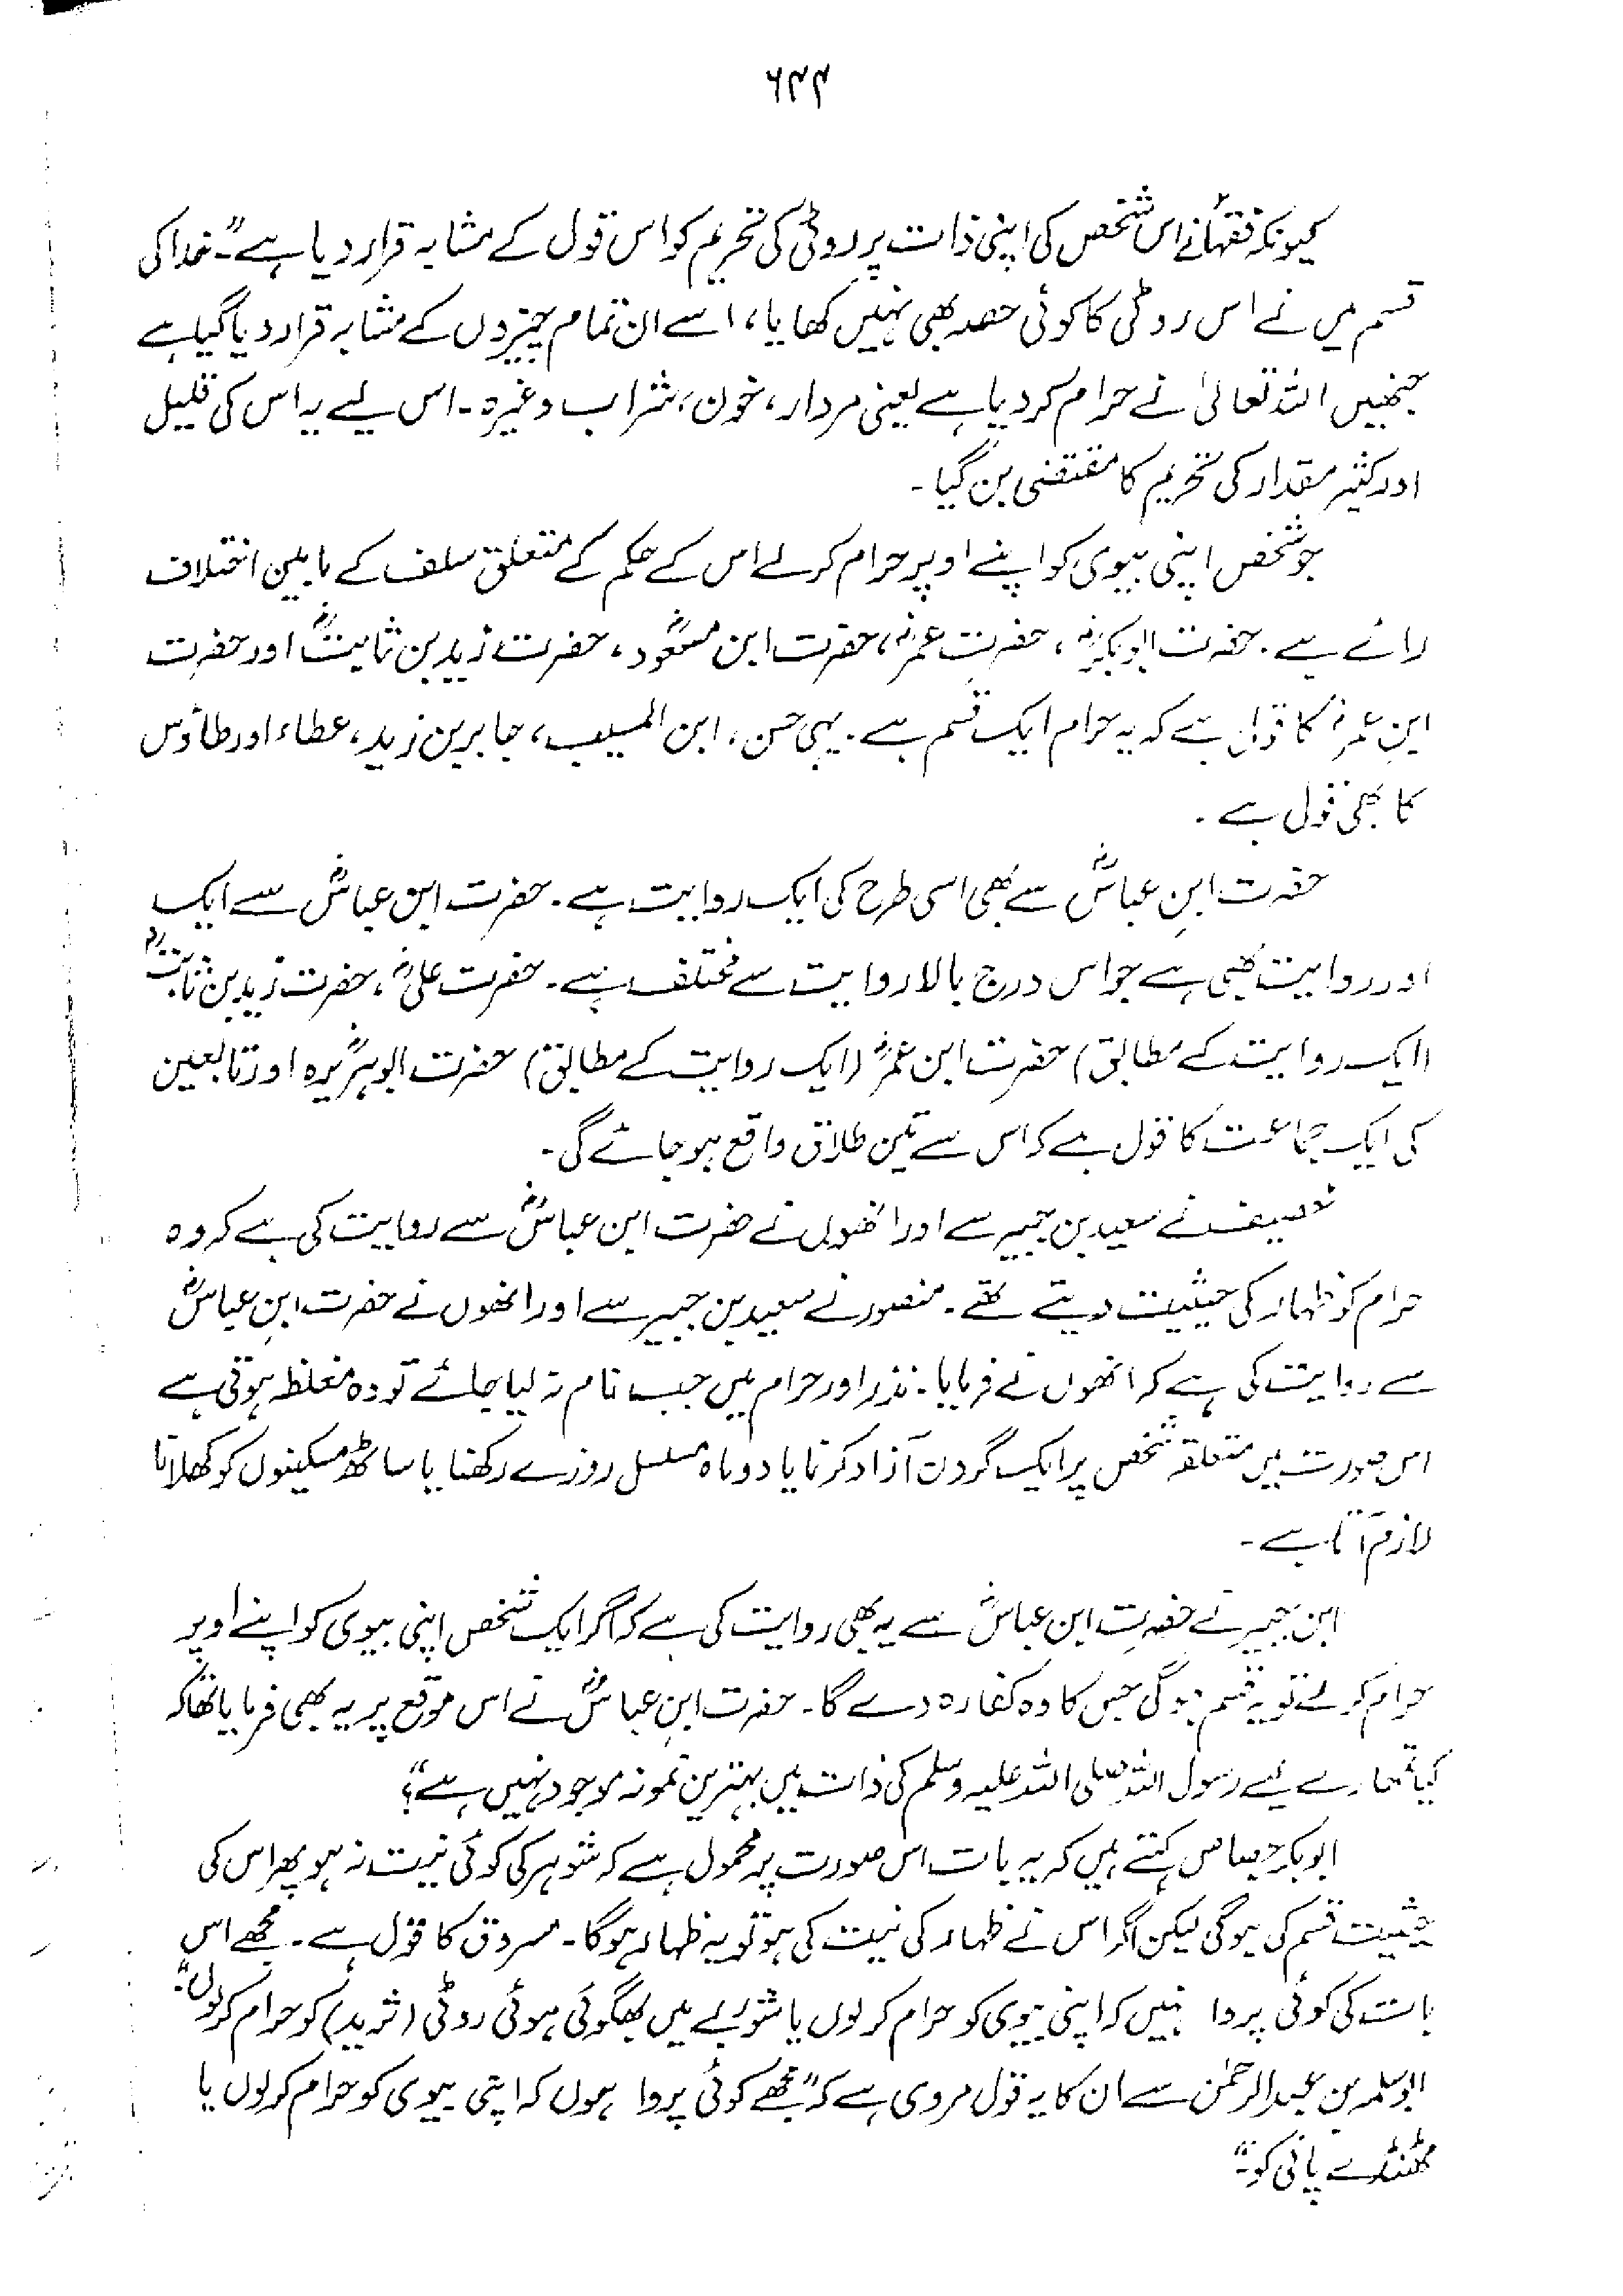 ۶۳۳
کیونکہ فقہاءنے اس شخص کی اپنی ذات پر روٹی کی تحریم کو اس قول کے مشابہ قرار دیا ہے "۔ خدا کی
قسم میں نے اس روٹی کا کوئی حصہ بھی نہیں کھایا، اسے ان تمام چیزوں کے مشابہ قرار دیا گیا ہے
جنھیں اللہ تعالیٰ نے حرام کر دیا ہے یعنی مردار، خون، شراب وغیرہ۔ اس لیے یہ اس کی قلیل
اور کثیر مقدار کی تحریم کا مقتضی بن گیا۔
جو شخص اپنی بیوی کو اپنے اوپر حرام کرلے اس کے حکم کے متعلق سلف کے مابین اختلاف
رائے ہے۔ حضرت ابوبکرؓ، حضرت عمرؓ، حضرت ابن مسعودؓ، حضرت زید بن ثابتؓ اور حضرت
ابن عمرؓ کا قول ہے کہ یہ حرام ایک قسم ہے۔ یہی حسن، ابن المسیب، جابر بن زید، عطاء اور طاؤس
کا بھی قول ہے۔
حضرت ابنِ عباسؓ سے بھی اسی طرح کی ایک روایت ہے۔ حضرت ابن عباسؓ سے ایک
اور روایت بھی ہے جو اس درج بالا روایت سے مختلف ہے۔ حضرت علیؓ، حضرت زید بن ثابتؓ
(ایک روایت کے مطابق) حضرت ابن عمرؓ (ایک روایت کے مطابق) حضرت ابوہریرہؓ اور تابعین
کی ایک جماعت کا قول ہے کہ اس سے تین طلاق واقع ہو جائے گی۔
خصیف نے سعید بن جبیر سے اور انھوں نے حضرت ابن عباسؓ سے روایت کی ہے کہ وہ
حرام کو ظہار کی حیثیت دیتے تھے۔ منصور نے سعید بن جبیر سے اور انھوں نے حضرت ابنِ عباسؓ
سے روایت کی ہے کہ انھوں نے فرمایا۔ نذر اور حرام میں جب نام نہ لیا جائے تو وہ مغلظہ ہوتی ہے
اس صورت میں متعلقہ شخص پر ایک گردن آزاد کرنا یا دو ماہ مسلسل روزے رکھنا یا ساٹھ مسکینوں کو کھلانا
لازم آتا ہے۔
ابن جبیر نے حضرت ابن عباسؓ سے یہ بھی روایت کی ہے کہ اگر ایک شخص اپنی بیوی کو اپنے اوپر
حرام کرلے تو یہ قسم ہوگی جس کا وہ کفارہ دے گا۔ حضرت ابنِ عباسؓ نے اس موقع پر یہ بھی فرمایا تھا کہ
کیا تمھارے لیے رسول اللہ صلی اللہ علیہ وسلم کی ذات میں بہترین نمونہ موجود نہیں ہے"؟
ابوبکر جصاص کہتے ہیں کہ یہ بات اس صورت پر محمول ہے کہ شوہر کی کوئی نیت نہ ہو پھر اس کی
حیثیت قسم کی ہوگی لیکن اگر اس نے ظہار کی نیت کی ہو تو یہ ظہار ہوگا۔ مسروق کا قول ہے۔ مجھے اس
بات کی کوئی پروا نہیں کہ اپنی بیوی کو حرام کرلوں یا شوربے میں بھگوئی ہوئی روٹی (ثرید) کو حرام کرلوں"۔
ابوسلمہ بن عبدالرحمٰن سے ان کا یہ قول مروی ہے کہ "مجھے کوئی پروا ہوں کہ اپنی بیوی کو حرام کرلوں یا
ٹھنڈے پانی کو"۔